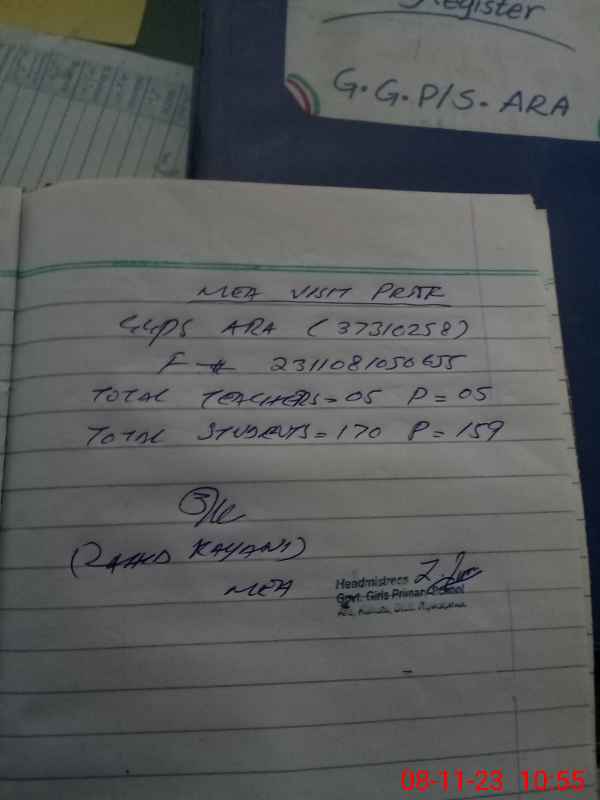 Register
G.G.P/S. ARA
MEA VISIT PROOF
GGPS ARA (37310258)
F # 2311081050655
TOTAL TEACHERS = 05 P = 05
TOTAL STUDENTS = 170 P = 159
KAYANI)
MEA
Headmistress
Govt. Girls Primary School
08-11-23 10:55